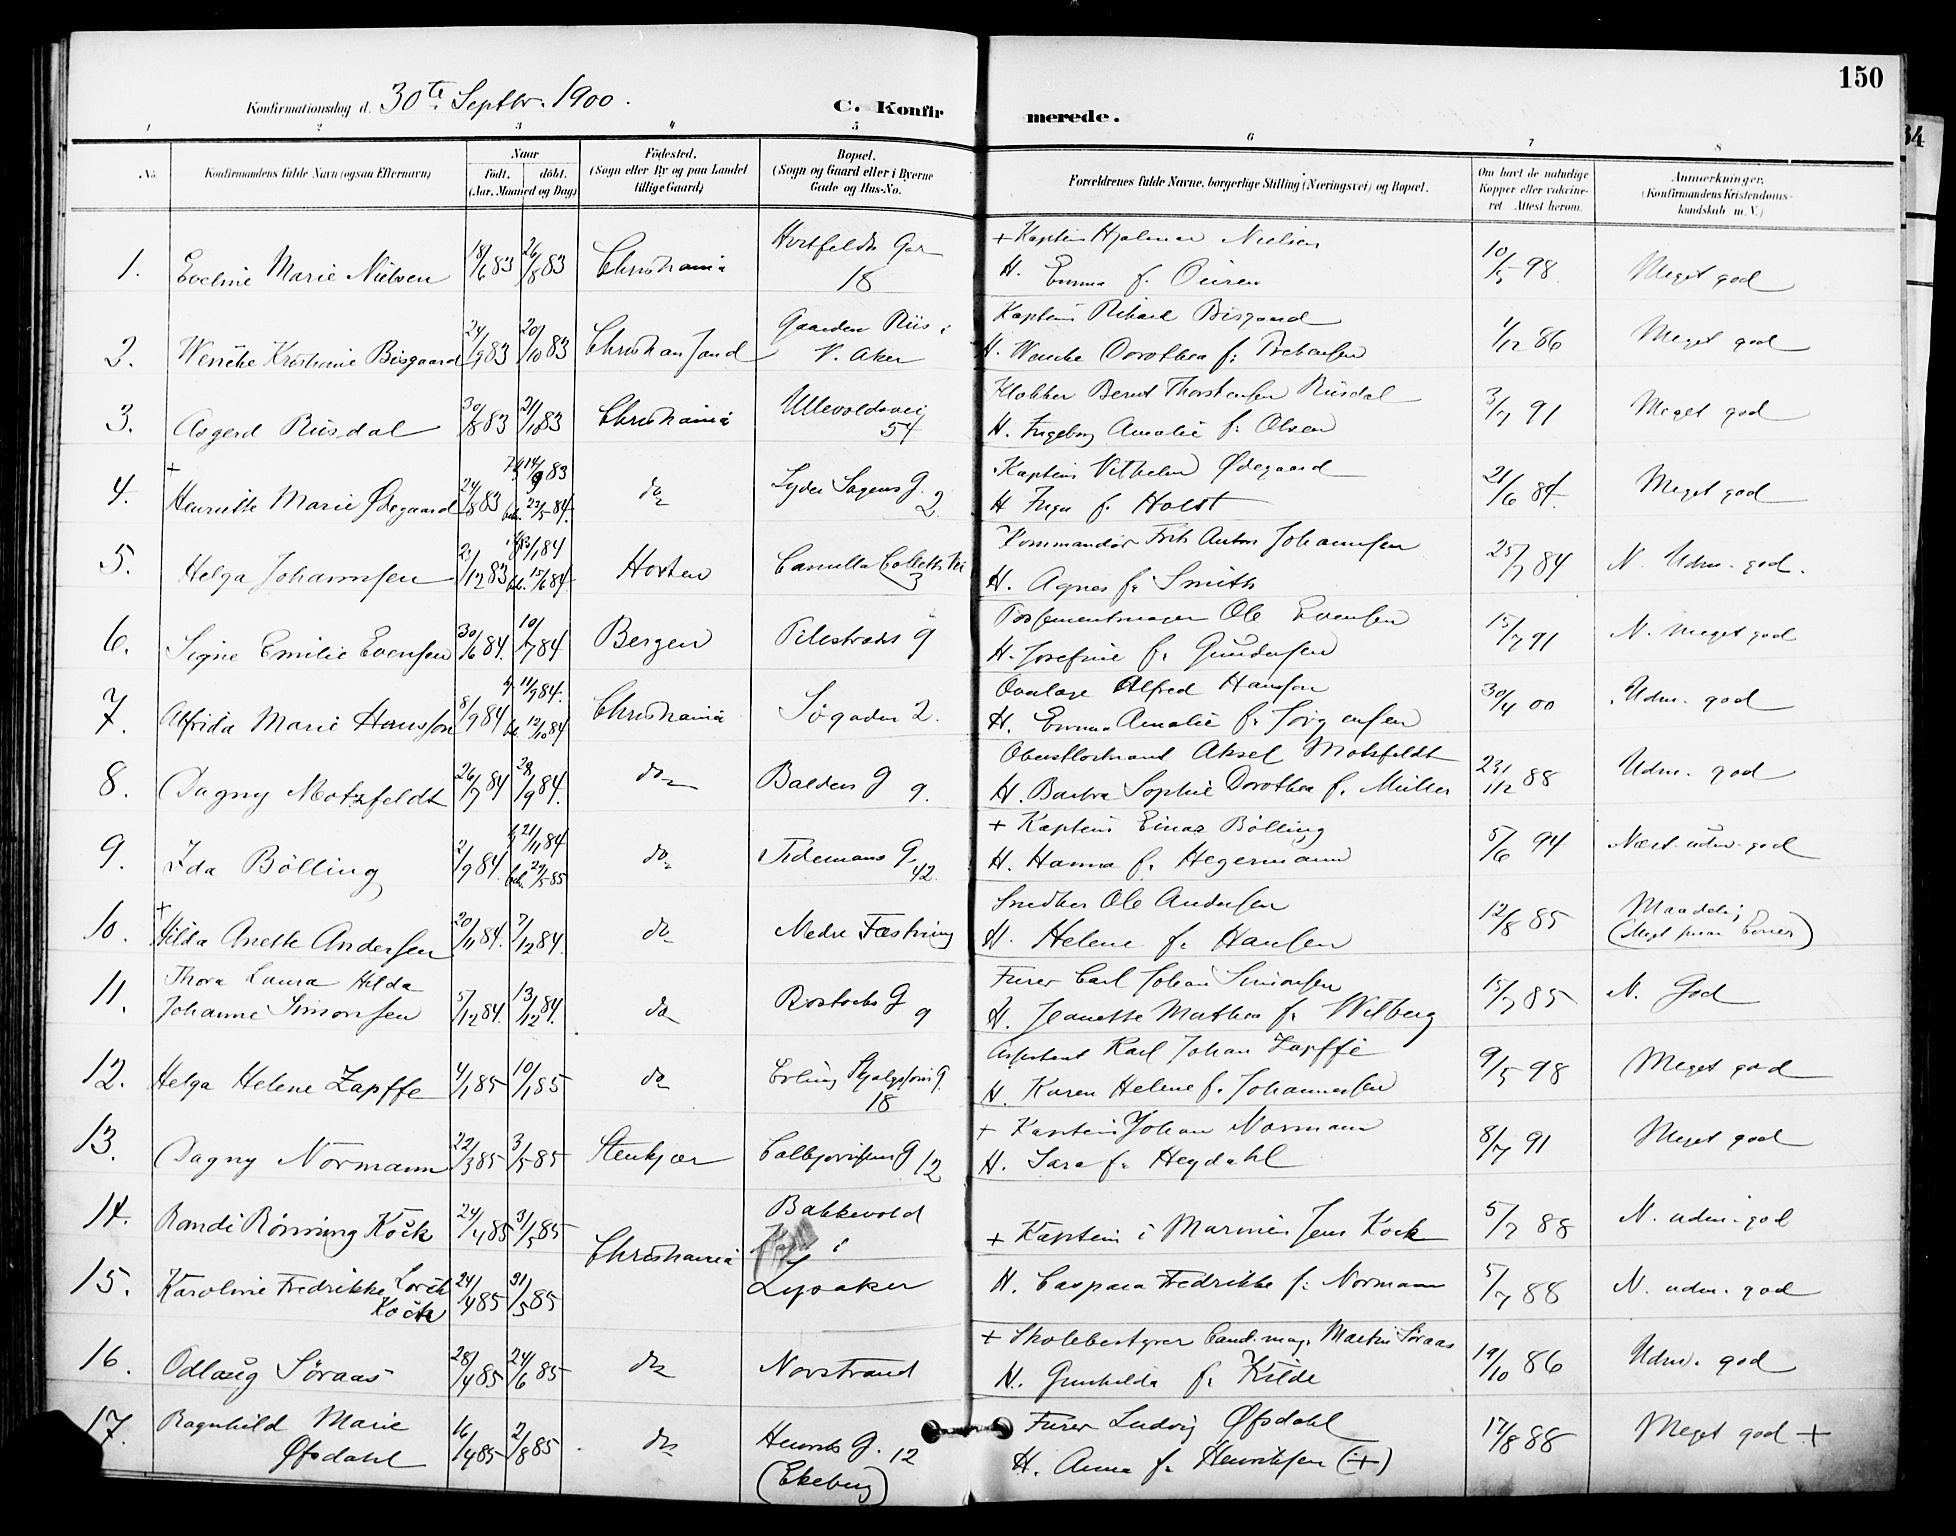 150
34
Konfirmationsdag d. 30te Septbr. 1900.
C. Konfirmerede.
1 2 3 4 5 6 7 8
No.
Konfirmandens fulde Navn (ogsaa Efternavn)
Naar
født. døbt.
(Aar, Maaned og Dag)
Födested.
(Sogn eller By og paa Landet
tillige Gaard)
Bopæl.
(Sogn og Gaard eller i Byerne
Gade og Hus-No.
Forældrenes fulde Navne, borgerlige Stilling (Næringsvei) og Bopæl.
Om havt de naturlige
Kopper eller vakcine-
ret. Attest herom.
Anmærkninger.
(Konfirmandens Kristendoms-
kundskab m. V.)
1. Eveline Marie Nielsen 18/6 83 26/8 83 Christiania 18
+ Kaptein Hjalmar Nielsen
H. Emma f. 10/5 98 Meget god
2. Wenche Kristiane Bisgaard 24/9 83 20/10 83 Christiansand Gaarden Riis i
V. Aker
Kaptein Rikard Bisgaard
H. Wenche Dorothea f. 1/12 86 Meget god
3. Asgerd Riisdal 30/8 83 21/10 83 Christiania Ullevoldsvei
54
Klokker Bernt Thorstensen Riisdal
H. Ingeborg Amalie f. Olsen 3/7 91 Meget god
4. + Henriette Marie Ødegaard 24/8 83 14/9 83
22/5 84. do Lyder Sagens G. 2.
Kaptein Vilhelm Ødegaard
H Inga f. Holst 21/6 84. Meget god
5. Helga Johannsen 21/12 83 84
15/6 84. Horten Camilla Colletts Vei
3
Kommandör Frits Anton Johannsen
H. Agnes f. Smith 25/7 84 N. Udm. god.
6. Signe Emilie Evensen 30/6 84. 10/7 84 Bergen Pilestræds g
Possementmager Ole Evensen
H. Josefine f. Gundersen 15/7 91 N. Meget god
7. Alfrida Marie Hansson 8/9 84 11/9 84.
12/10 84 Christiania Søgaden 2.
Overlæge Alfred Hansson
H. Emma Amalie f. Jørgensen 30/4 00 Udm. god
8. Dagny Motzfeldt 26/7 84 28/9 84. do Balders g 9.
Oberstløitnant Aksel Motzfeldt
H. Barbra Sophie Dorothea f. Müller 23/12 88 Udm. god
9. Ida Bölling 2/9 84. 21/11 84
29/5 85 do Tidemans g. 42.
+ Kaptein Einar Bölling
H. Hanna f. Hegermann 5/6 94 Næst. udm. god
10. + Hilda Anette Andersen 20/11 84. 7/12 84. do Nedre Fæstning
Snedker Ole Andersen
H. Helene f. Hansen 12/8 85 Maadelig
11. Thora Laura Hilda
Johanne Simonsen 5/12 84. 13/12 84. do Rostocks G 9
Furer Carl Johan Simonsen
H. Jeanette Mathea f. Wilberg 15/7 85 N. God
12. Helga Helene Zapffe 4/1 85 10/1 85 do Erling Skjalgsøns g.
18
Assistent Karl Johan Zapffe
H. Karen Helene f. Johannesen 9/5 98 Meget god
13. Dagny Normann 22/3 85 3/5 85 Stenkjær Colbjørnsens g 12
+ Kaptein Johan Normann
H. Sara f. Hegdahl 8/7 91 Meget god
14. Randi Rönning Kock 24/4 85 31/5 85 Christiania Bakkevold
i
Lysaker
+ Kaptein i Marinen Jens Kock 5/7 88 N. udm. god
15. Karoline Fredrikke Lorck
Kock 24/4 85 31/5 85
H. Caspara Fredrikke f. Normann 5/7 88 N. udm. god
16. Odlaug Søraas 28/4 85 24/6 85 do Norstrand
+ Skolebestyrer Cand. mag. Martin Søraas
H. Gunhilda f. Kilde 19/10 86 Udm. god
17. Ragnhild Marie
Øfsdahl 16/4 85 2/8 85 do Henriks G. 12
(Ekeberg)
Furer Ludvig Øfsdahl
H. Anna f. Henriksen (+) 17/8 88 Meget god +